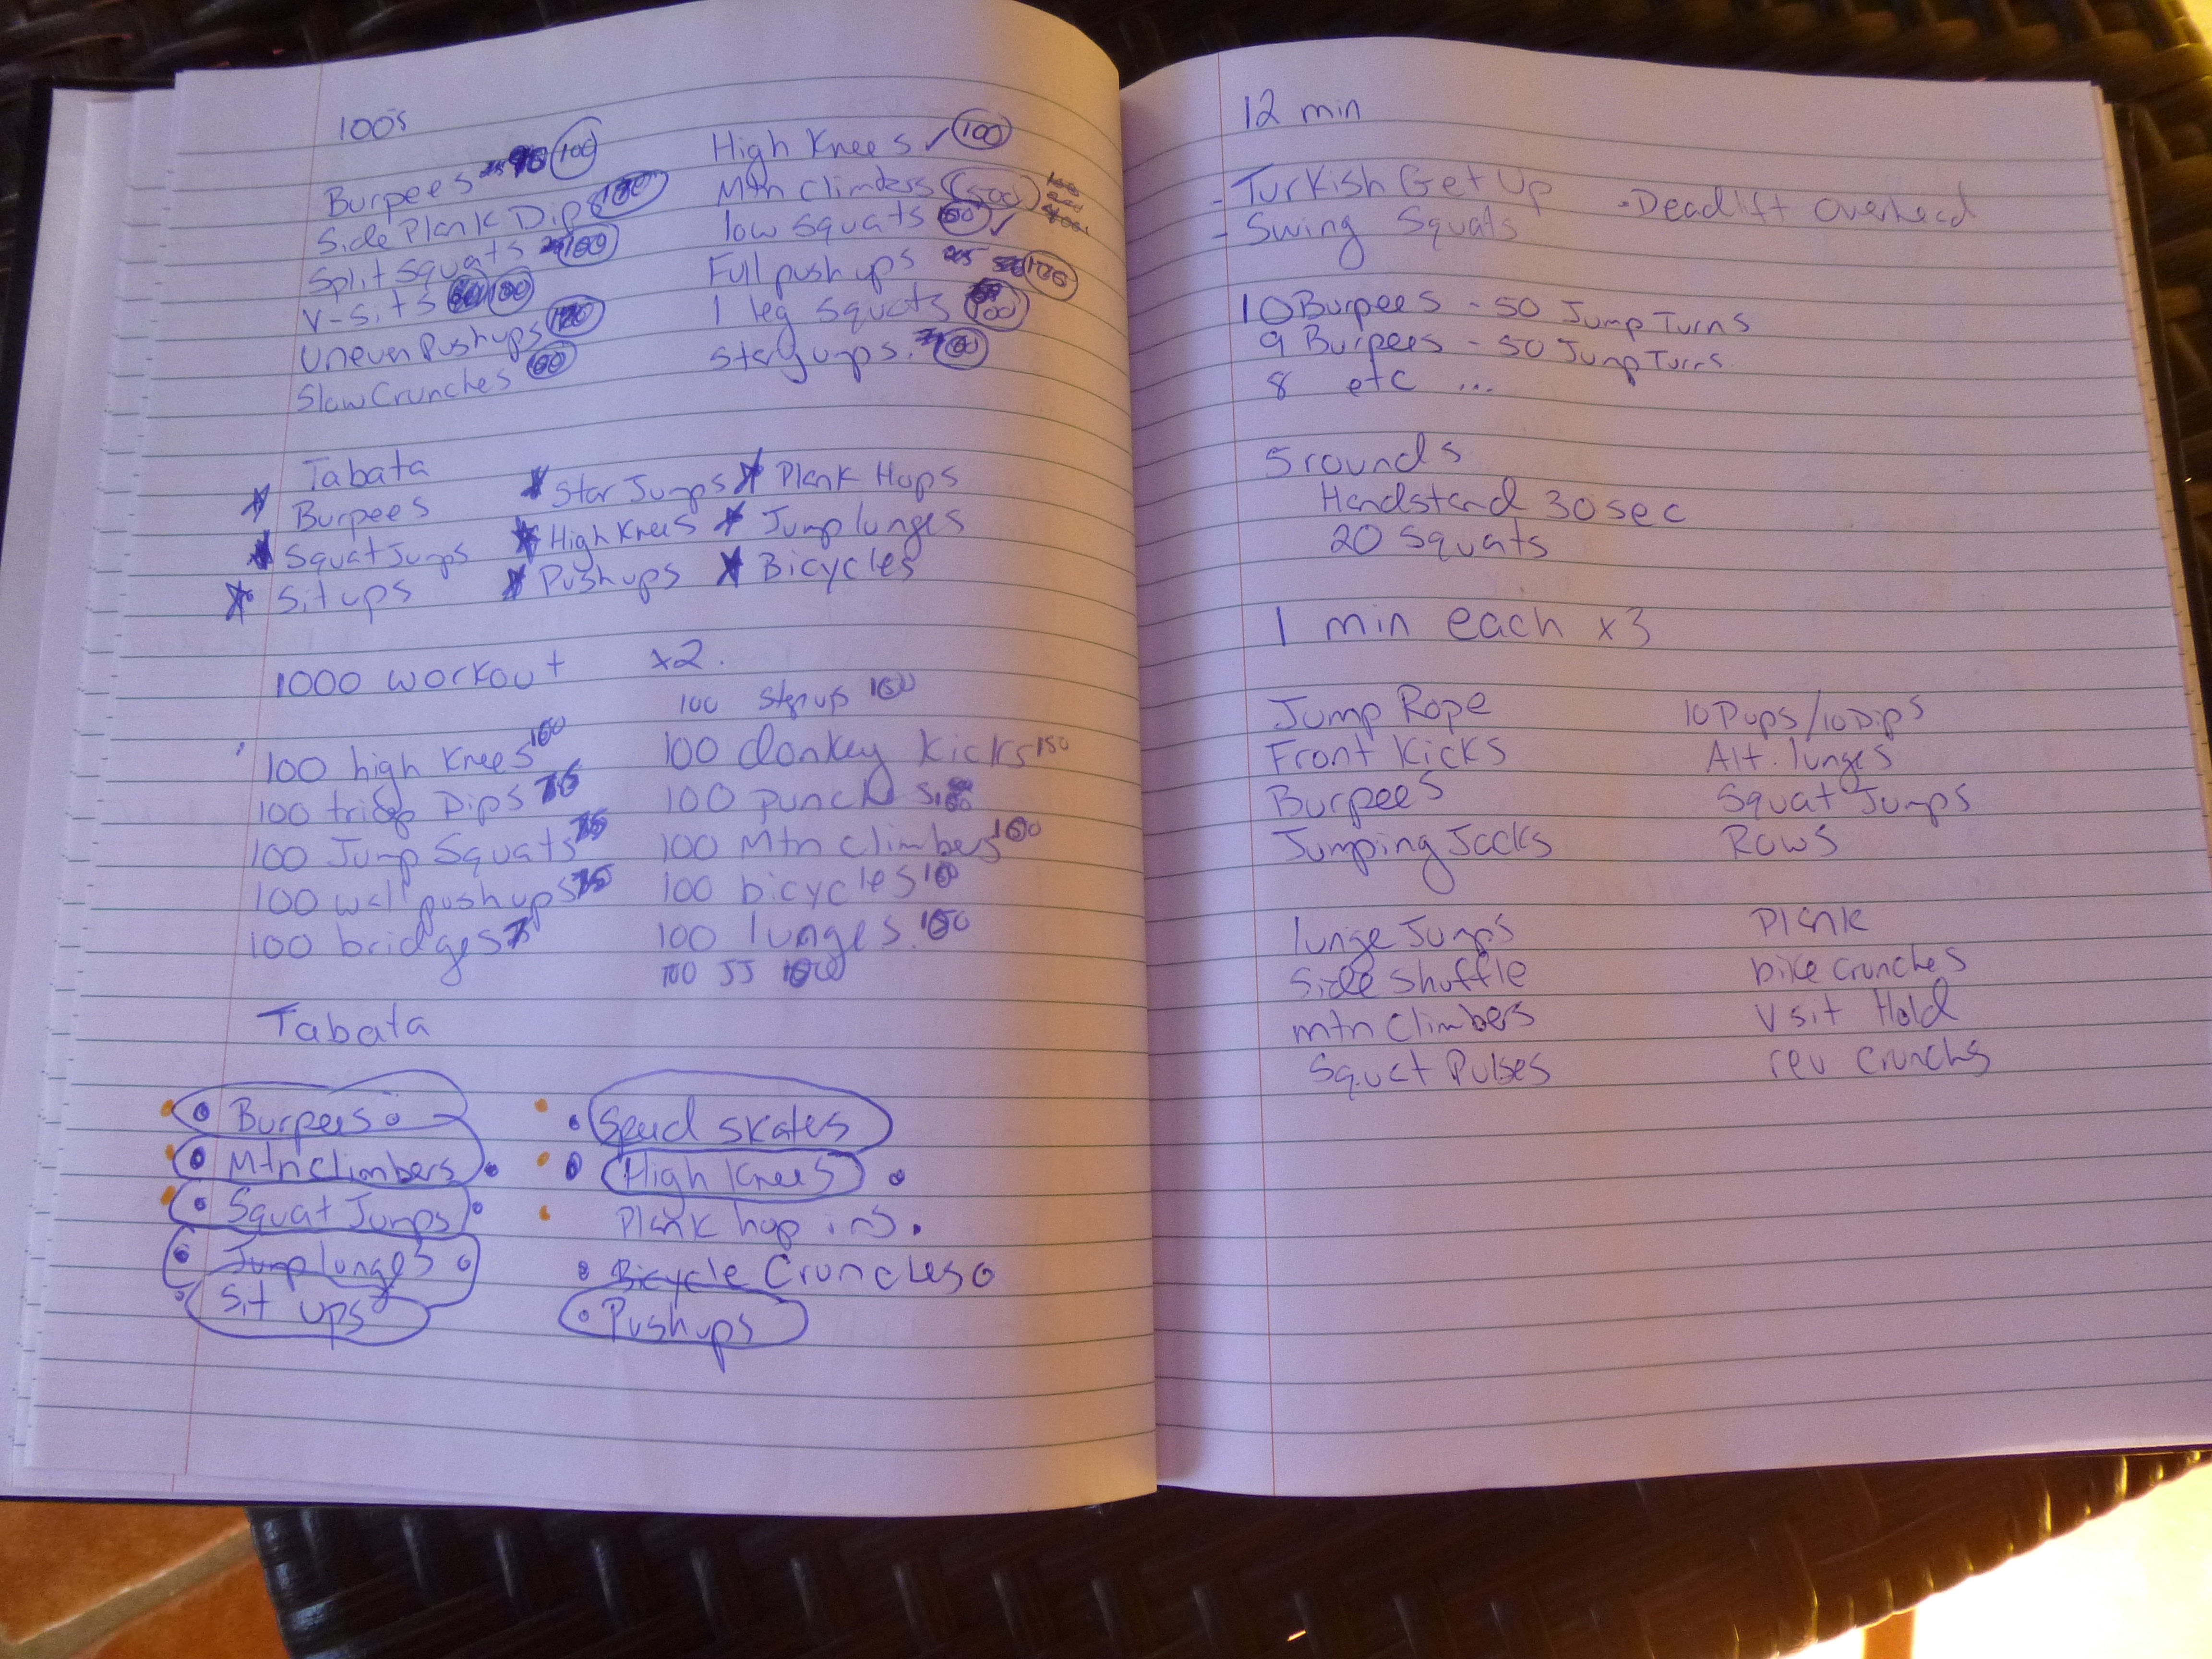 100's
Burpees 100
Side Plank Dips 100
Split Squats 100
V-sits 100
Uneven Pushups 100
Slow Crunches 100
High Knees ✓ 100
Mtn Climbers 500
low squats 100 ✓
Full push ups 100
1 leg squats 100
Star Jumps. 100
Tabata
Burpees
Squat Jumps
Sit ups
Star Jumps
High Knees
Pushups
Plank Hops
Jump lunges
Bicycles
1000 workout x2.
100 high knees 100
100 tricep Dips 75
100 Jump Squats 75
100 wall pushups 75
100 bridges
100 step up 100
100 donkey kicks 150
100 punches
100 Mtn climbers 100
100 bicycles 100
100 lunges. 100
100 JJ 100
Tabata
Burpees
Mtn Climbers
Squat Jumps
Jump lunges
Sit ups
Speed skates
High Knees
Plank hop ins.
Bicycle Crunches
Pushups
12 min
- Turkish Get Up
- Swing Squats
- Deadlift overhead
10 Burpees - 50 Jump Turns
9 Burpees - 50 Jump Turns.
8 etc ...
5 rounds
Handstand 30 sec
20 Squats
1 min each x3
Jump Rope
Front Kicks
Burpees
Jumping Jacks
10 Pups/10 Dips
Alt. lunges
Squat Jumps
Rows
lunge Jumps
Side shuffle
mtn Climbers
Squat Pulses
Plank
bike crunches
V sit Hold
rev crunchs